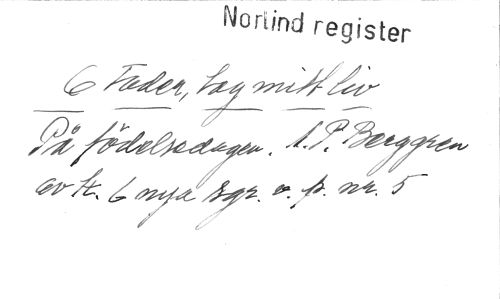 Nortind register
6 Fader, tag mitt liv
På födelsedagen. A. P. Berggren
av H. 6 nya sgr. o. p. nr. 5